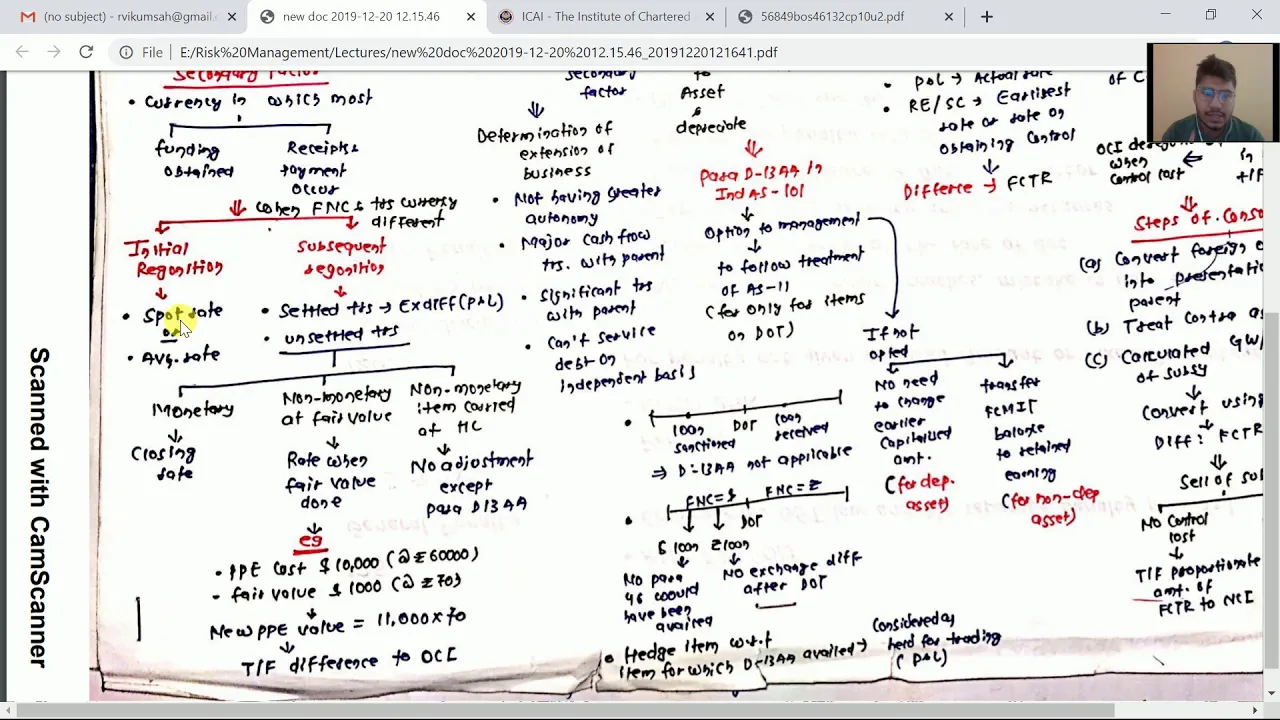 (no subject) - rvikumsah@gmail.c
new doc 2019-12-20 12.15.46
ICAI - The Institute of Chartered
56849bos46132cp10u2.pdf
File | E:/Risk%20Management/Lectures/new%20doc%202019-12-20%2012.15.46_20191220121641.pdf
Secondary Factor
• Currency in which most
funding
obtained
Receipts &
payment
occur
When FNC & trs currency
different
Initial
Regonition
• Spot rate
or
• Avg. rate
Subsequent
regonition
• Settled trs → Exdiff (P&L)
• unsettled trs
Monetary
Closing
rate
Non-monetary
at fair value
Rate when
fair value
done
eg
Non-monetary
item carried
at HC
No adjustment
except
para D13AA
• PPE cost $ 10,000 (@ ₹ 60000)
• fair value $ 1000 (@ ₹ 70)
New PPE value = 11,000 x 70
T/F difference to OCI
secondary
factor
Determination of
extension of
business
• Not having greater
autonomy
• Major cash flow
trs. with parent
• Significant trs
with parent
• Can't service
debt on
independent basis
to
Asset
&
depreciate
Para D-13AA in
Ind AS-101
Option to management
to follow treatment
of AS-11
(for only for items
on DOT)
If not
opted
No need
to change
earlier
capitalized
amt.
(for dep.
asset)
transfer
FCMIT
balance
to retained
earning
(for non-dep
asset)
• loan
sanctioned
DOT
loan
received
⇒ D-13AA not applicable
• FNC = $
FNC = ₹
DOT
$ loan
₹ loan
No para
46 could
have been
availed
No exchange diff
after DOT
• Hedge item w.r.t
item for which D-13AA availed →
Considered as
held for trading
(P&L)
• P&L → Actual rate
• RE/SC → Earliest
rate or rate on
obtaining control
Difference → FCTR
of C
OCI
when
control lost
in
Steps of Conso
(a) Convert foreign
into presentati
parent
(b) Treat Contra a
(c) Calculated GW/
of subsy
Convert using
Diff: FCTR
Sell of su
No Control
lost
T/F proportionate
amt. of
FCTR to NCI
Scanned with CamScanner